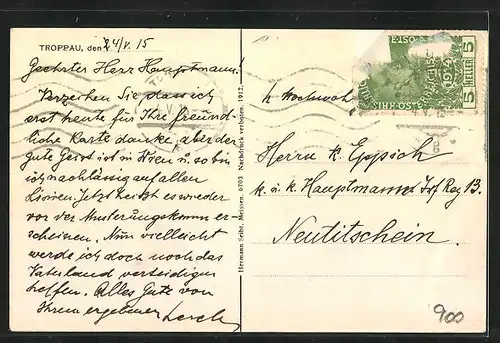 TROPPAU, den 24/V. 15
Geehrter Herr Hauptmann!
Verzeihen Sie, dass ich
erst heute für Ihre freund-
liche Karte danke, aber der
gute Geist ist in Wien u. so bin
ich nachlässig auf allen
Linien. Jetzt heisst es wieder
vor der Musterungskomm er-
scheinen. Nun vielleicht
werde ich doch noch das
Vaterland verteidigen
helfen. Alles Gute von
Ihrem ergebenen Lerch
Hermann Seibt, Meissen. 6703 Nachdruck verboten. 1912.
5 HELLER 5
1914
Herrn k. Eppich
k. u. k. Hauptmann Inf Reg 13.
Neutitschein.
900